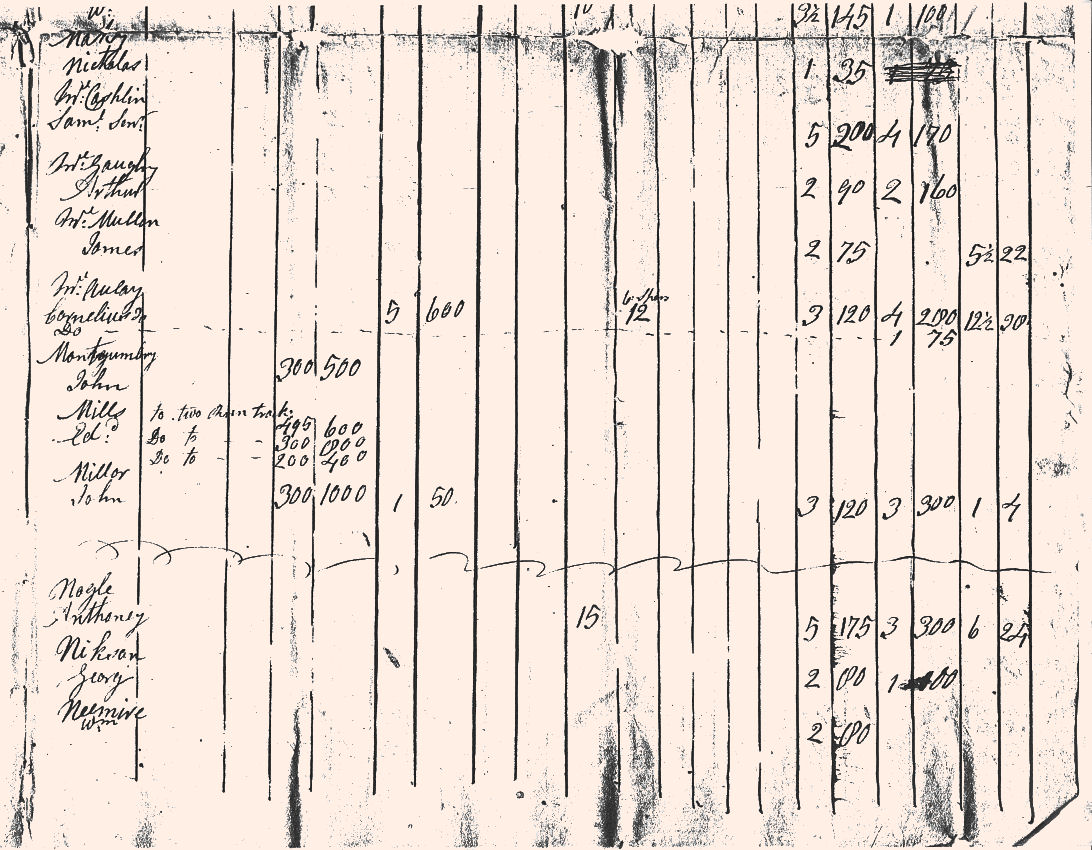 Wm 10 3½ 145 1 100
Mary
Nicholas 1 35
McCashlin
Saml. Senr. 5 200 4 170
McGaughy
Arthur 2 90 2 160
McMullen
James 2 75 5½ 22
McAulay
Cornelius 5 600 12 3 120 4 200 12½ 30
Do 1 75
Montgumbry
John 300 500
Mills to two 495 600
Edd. Do to 300 800
Do to 200 400
Millar
John 300 1000 1 50 3 120 3 300 1 4
Nogle
Anthoney 15 5 175 3 300 6 24
Nikson
Georg 2 80 1 100
Neemire
Wm 2 80